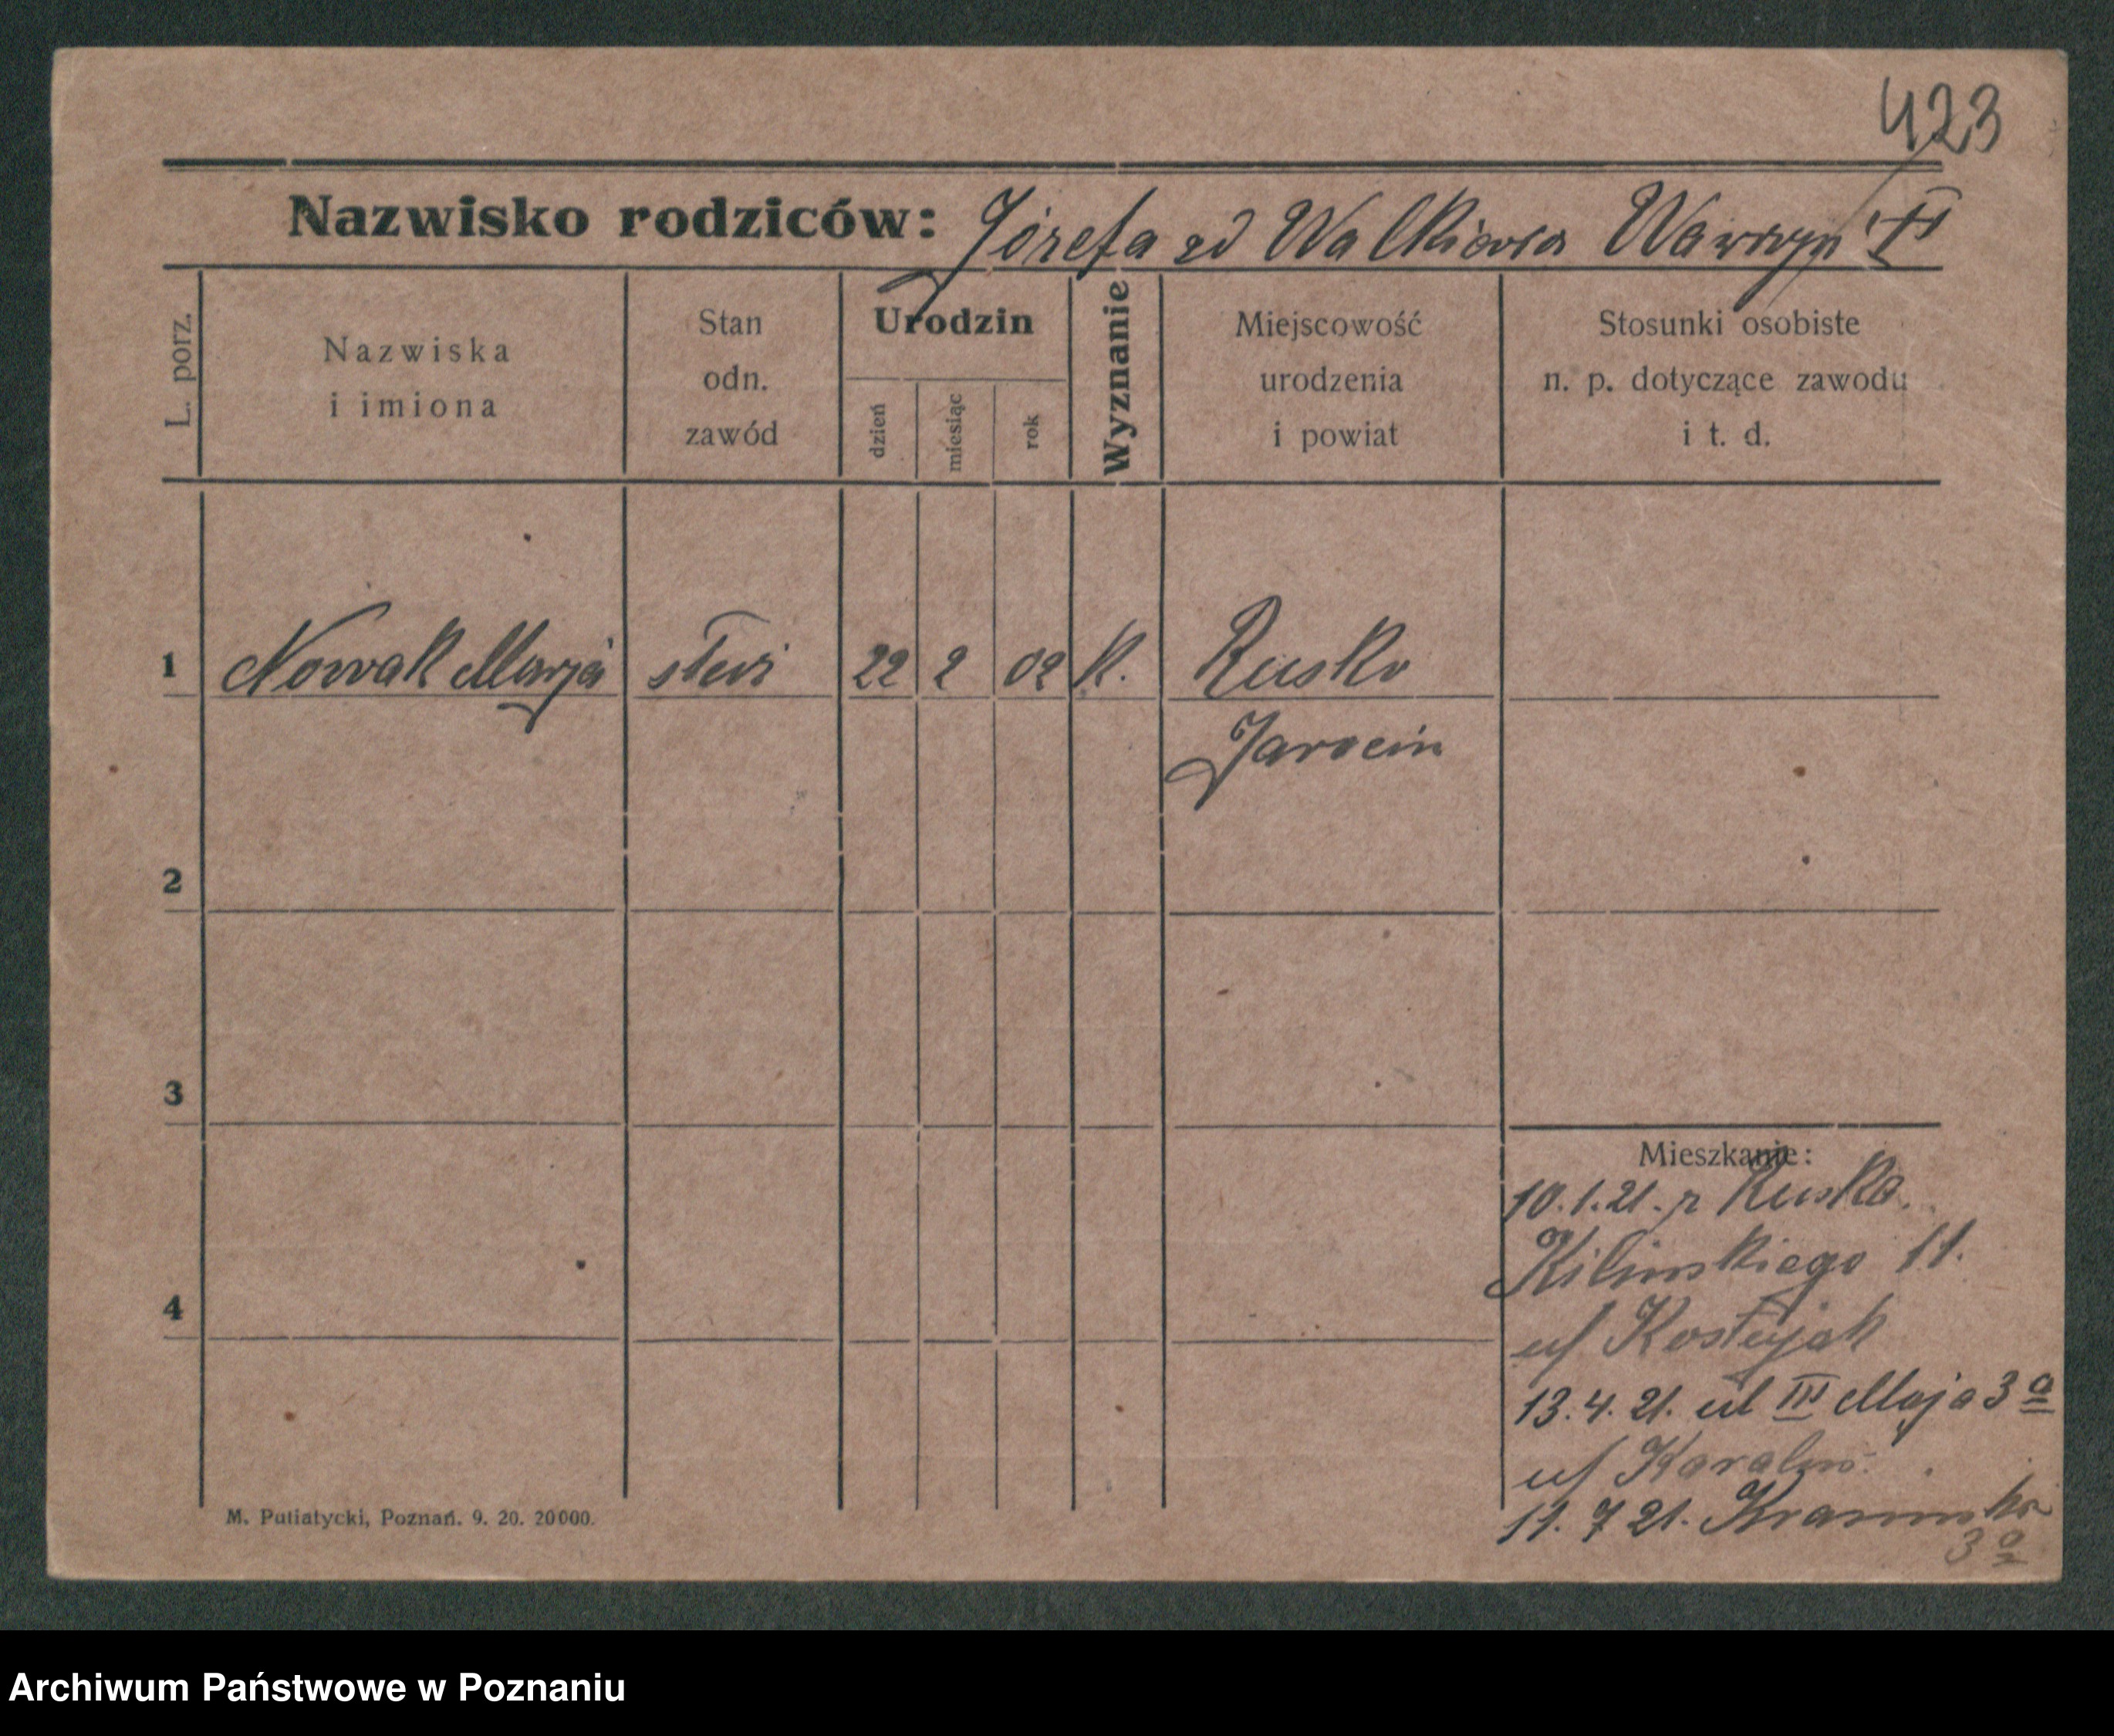 423
Nazwisko rodziców: Józefa zd Walkiewicz Wawrzyn
L. porz.
Nazwiska
i imiona
Stan
odn.
zawód
Urodzin
dzień
miesiąc
rok
Wyznanie
Miejscowość
urodzenia
i powiat
Stosunki osobiste
n. p. dotyczące zawodu
i t. d.
1 Nowak Marja 22 2 02 k. Rusko
Jarocin
2
3
4
Mieszkanie:
10.1.21. z Ruska.
Kilinskiego 11.
13.4.21. ul III Maja 3a
11.7 21.
3a
M. Putiatycki, Poznań. 9. 20. 20000.
Archiwum Państwowe w Poznaniu